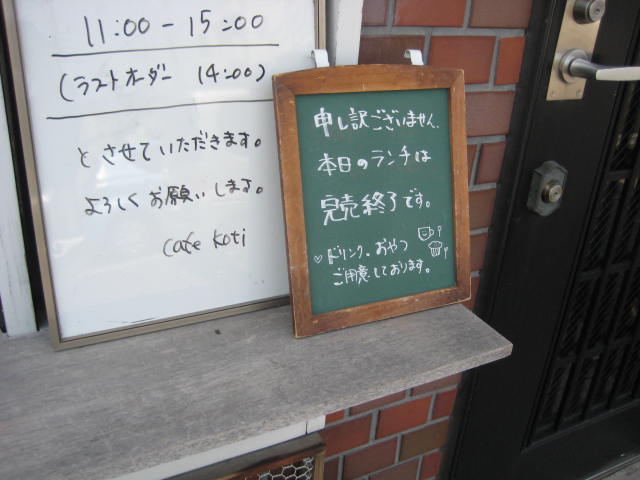 11:00 - 15:00
(ラストオーダー 14:00)
とさせていただきます。
よろしくお願いします。
cafe koti
申し訳ございません。
本日のランチは
完売終了です。
♡ドリンク、おやつ
ご用意しております。